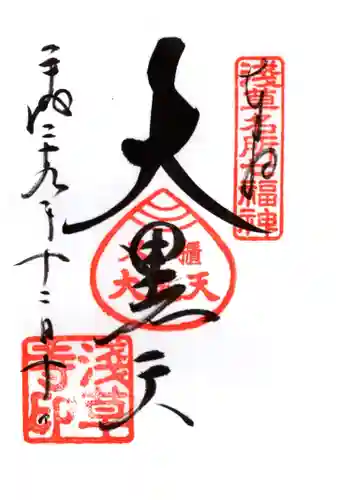 奉拝
浅草名所七福神
大黒天
平成二十九年十二月十二日
浅草寺印